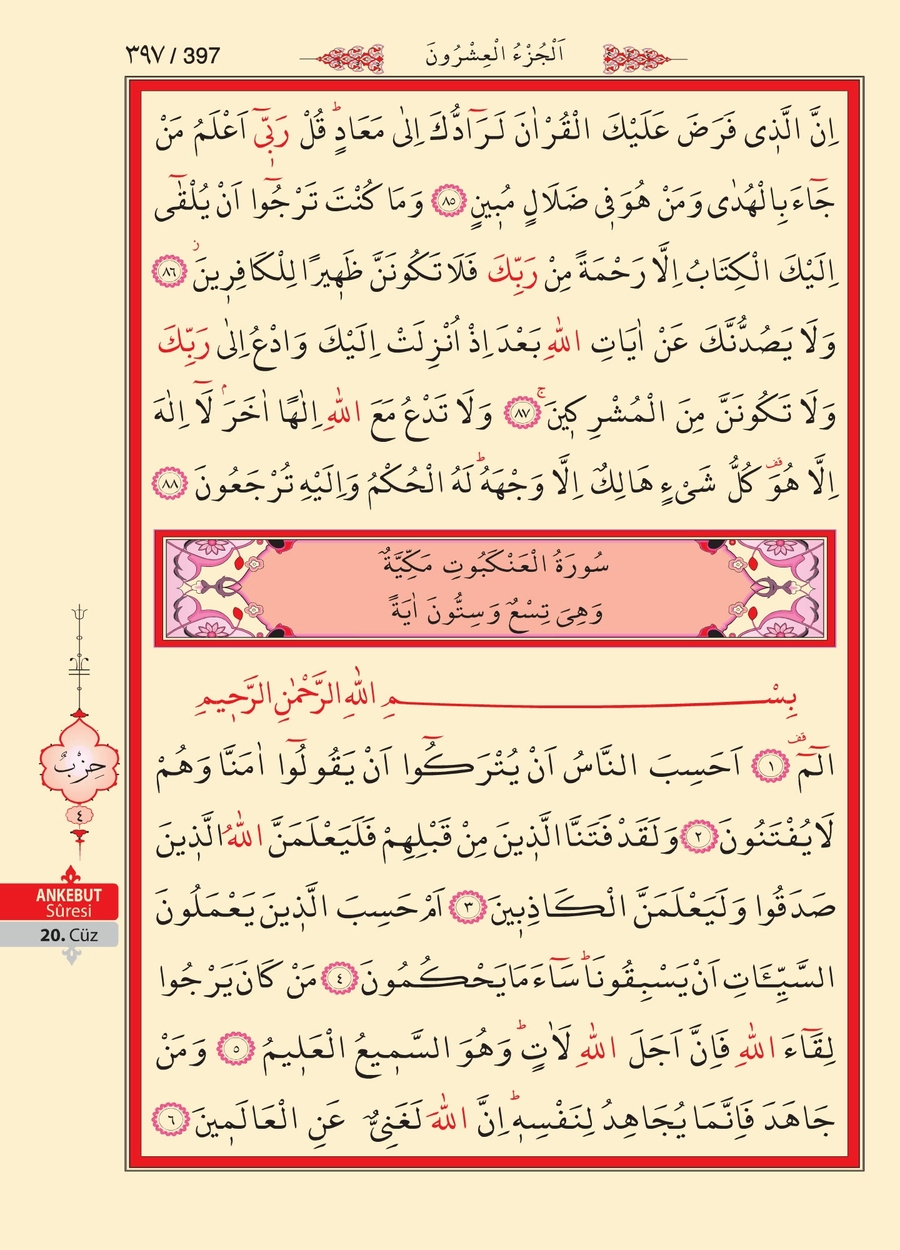 ٣٩٧ / 397
اَلْجُزْءُ الْعِشْرُونَ
اِنَّ الَّذ۪ي فَرَضَ عَلَيْكَ الْقُرْاٰنَ لَرَٓادُّكَ اِلٰى مَعَادٍۜ قُلْ رَبّ۪ٓي اَعْلَمُ مَنْ
جَٓاءَ بِالْهُدٰى وَمَنْ هُوَ ف۪ي ضَلَالٍ مُب۪ينٍ ﴿٨٥﴾ وَمَا كُنْتَ تَرْجُٓوا اَنْ يُلْقٰٓى
اِلَيْكَ الْكِتَابُ اِلَّا رَحْمَةً مِنْ رَبِّكَ فَلَا تَكُونَنَّ ظَه۪يرًا لِلْكَافِر۪ينَۘ ﴿٨٦﴾
وَلَا يَصُدُّنَّكَ عَنْ اٰيَاتِ اللّٰهِ بَعْدَ اِذْ اُنْزِلَتْ اِلَيْكَ وَادْعُ اِلٰى رَبِّكَ
وَلَا تَكُونَنَّ مِنَ الْمُشْرِك۪ينَۚ ﴿٨٧﴾ وَلَا تَدْعُ مَعَ اللّٰهِ اِلٰهًا اٰخَرَۢ لَٓا اِلٰهَ
اِلَّا هُوَ۠ كُلُّ شَيْءٍ هَالِكٌ اِلَّا وَجْهَهُۜ لَهُ الْحُكْمُ وَاِلَيْهِ تُرْجَعُونَ ﴿٨٨﴾
سُورَةُ الْعَنْكَبُوتِ مَكِّيَّةٌ
وَهِيَ تِسْعٌ وَسِتُّونَ اٰيَةً
بِسْمِ اللّٰهِ الرَّحْمٰنِ الرَّح۪يمِ
الٓمٓ۠ ﴿١﴾ اَحَسِبَ النَّاسُ اَنْ يُتْرَكُٓوا اَنْ يَقُولُٓوا اٰمَنَّا وَهُمْ
لَا يُفْتَنُونَ ﴿٢﴾ وَلَقَدْ فَتَنَّا الَّذ۪ينَ مِنْ قَبْلِهِمْ فَلَيَعْلَمَنَّ اللّٰهُ الَّذ۪ينَ
صَدَقُوا وَلَيَعْلَمَنَّ الْكَاذِب۪ينَ ﴿٣﴾ اَمْ حَسِبَ الَّذ۪ينَ يَعْمَلُونَ
السَّيِّـَٔاتِ اَنْ يَسْبِقُونَاۜ سَٓاءَ مَا يَحْكُمُونَ ﴿٤﴾ مَنْ كَانَ يَرْجُوا
لِقَٓاءَ اللّٰهِ فَاِنَّ اَجَلَ اللّٰهِ لَاٰتٍۜ وَهُوَ السَّم۪يعُ الْعَل۪يمُ ﴿٥﴾ وَمَنْ
جَاهَدَ فَاِنَّمَا يُجَاهِدُ لِنَفْسِه۪ۜ اِنَّ اللّٰهَ لَغَنِيٌّ عَنِ الْعَالَم۪ينَ ﴿٦﴾
حِزْبٌ
٤
ANKEBUT
Sûresi
20. Cüz